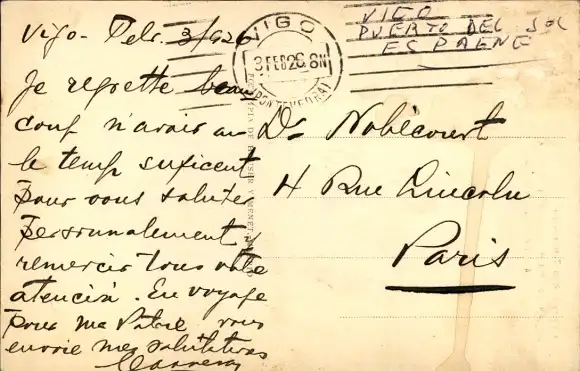 Vigo - Febr. 3/926
Je regrette beau
coup n'avais au
le temp suficent
pour vous saluter
personnalement,
remercir tous votre
atenciá. En voyage
pour ma Patrie vous
envoie mes salutations
VIGO
3 FEB 26 8N
(PONTEVEDRA)
VIGO
PUERTO DEL SOL
ESPAENE
Dr Nobécourt
4 Rue Lincoln
Paris